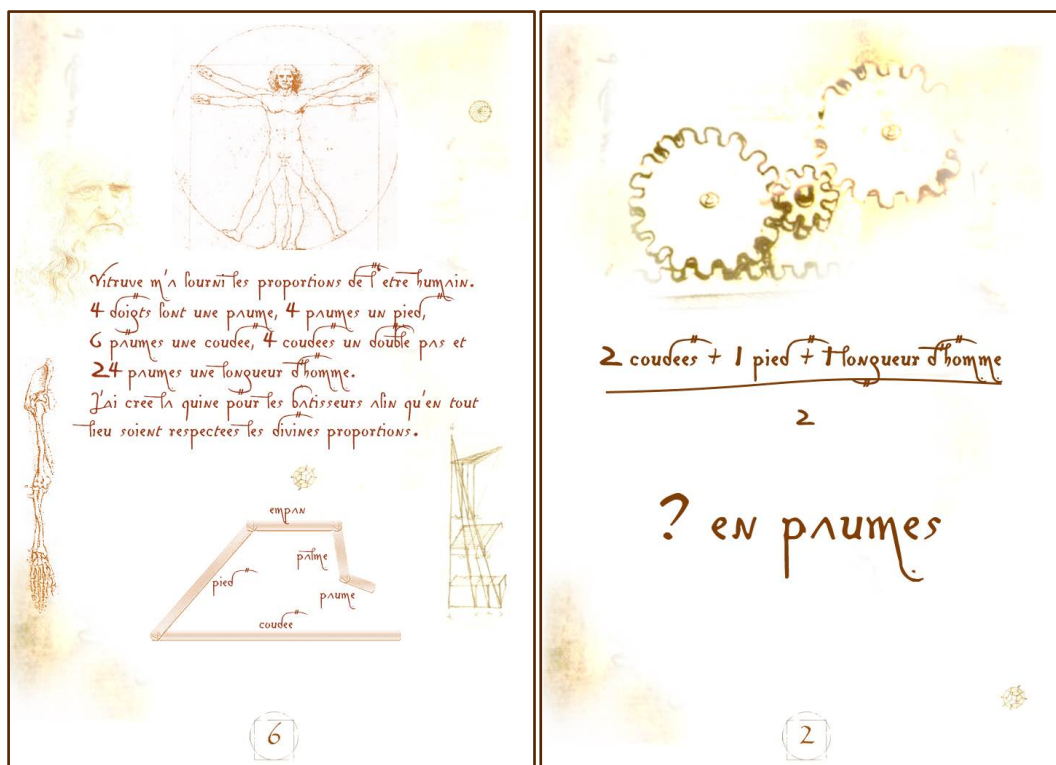 Vitruve m'a fourni les proportions de l'etre humain.
4 doigts font une paume, 4 paumes un pied,
6 paumes une coudee, 4 coudees un double pas et
24 paumes une longueur d'homme.
J'ai cree la quine pour les batisseurs afin qu'en tout
lieu soient respectees les divines proportions.
empan
palme
pied
paume
coudee
6
2 coudees + 1 pied + 1 longueur d'homme
2
? en paumes
2